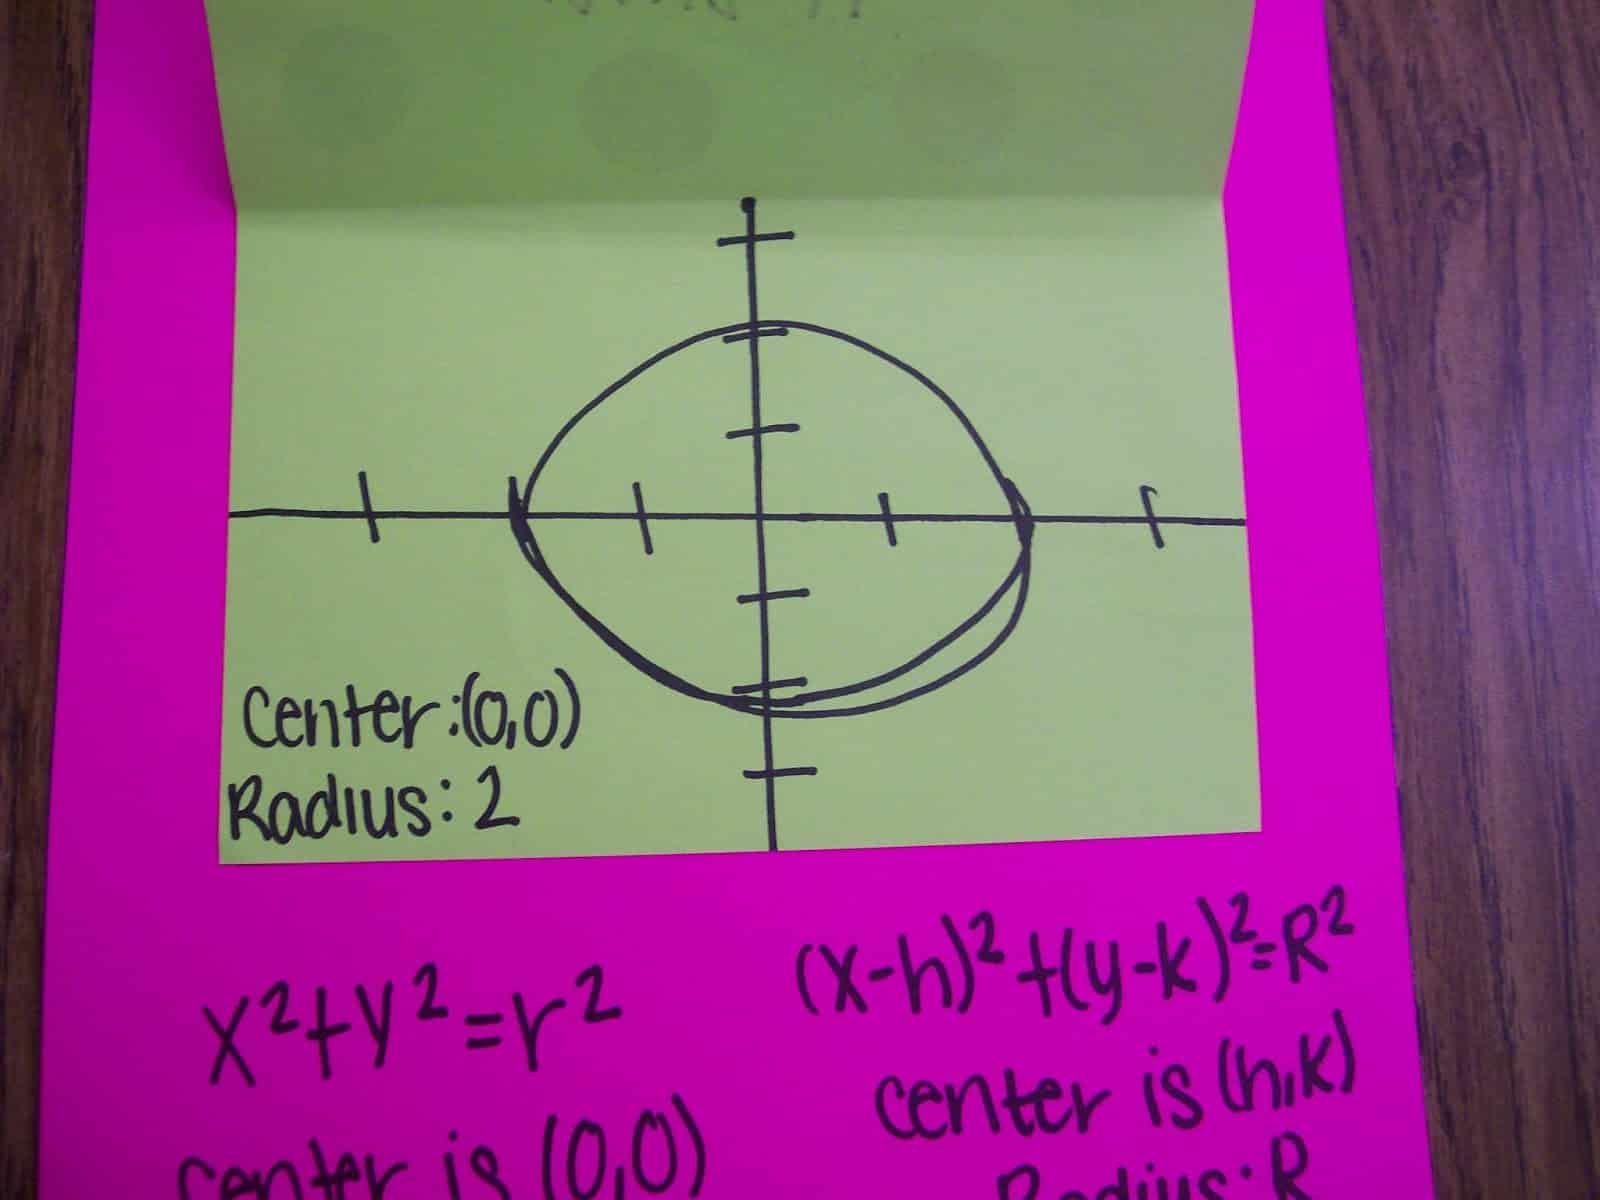 Center:(0,0)
Radius: 2
x²+y²=r²
center is (0,0)
(x-h)²+(y-k)²=R²
center is (h,k)
Radius: R